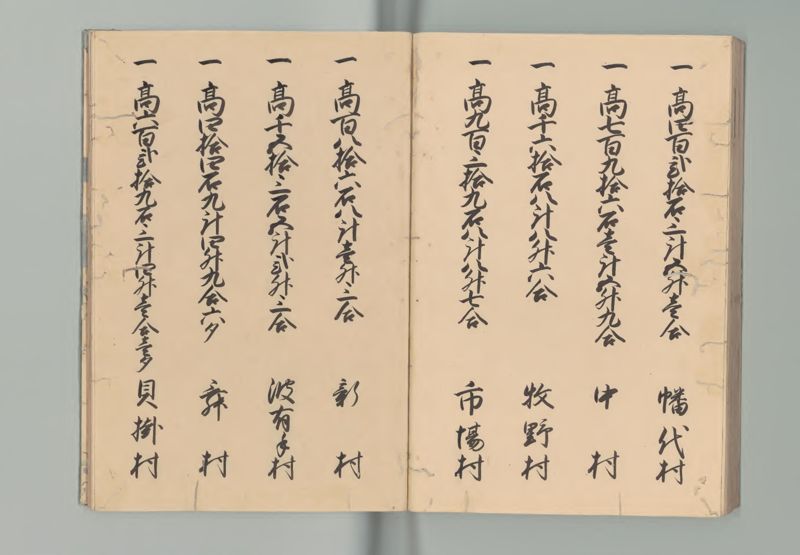 一 高四百弐拾石三斗五升壱合 幡代村
一 高七百九拾六石壱斗五升九合 中村
一 高千六拾石八斗八升六合 牧野村
一 高九百三拾九石八斗八升七合 市場村
一 高百八拾六石八斗壱升三合 新村
一 高千五拾三石五斗弐升三合 波有手村
一 高四拾四石九斗四升九合六夕 舞村
一 高六百弐拾九石三斗四升壱合壱夕 貝掛村